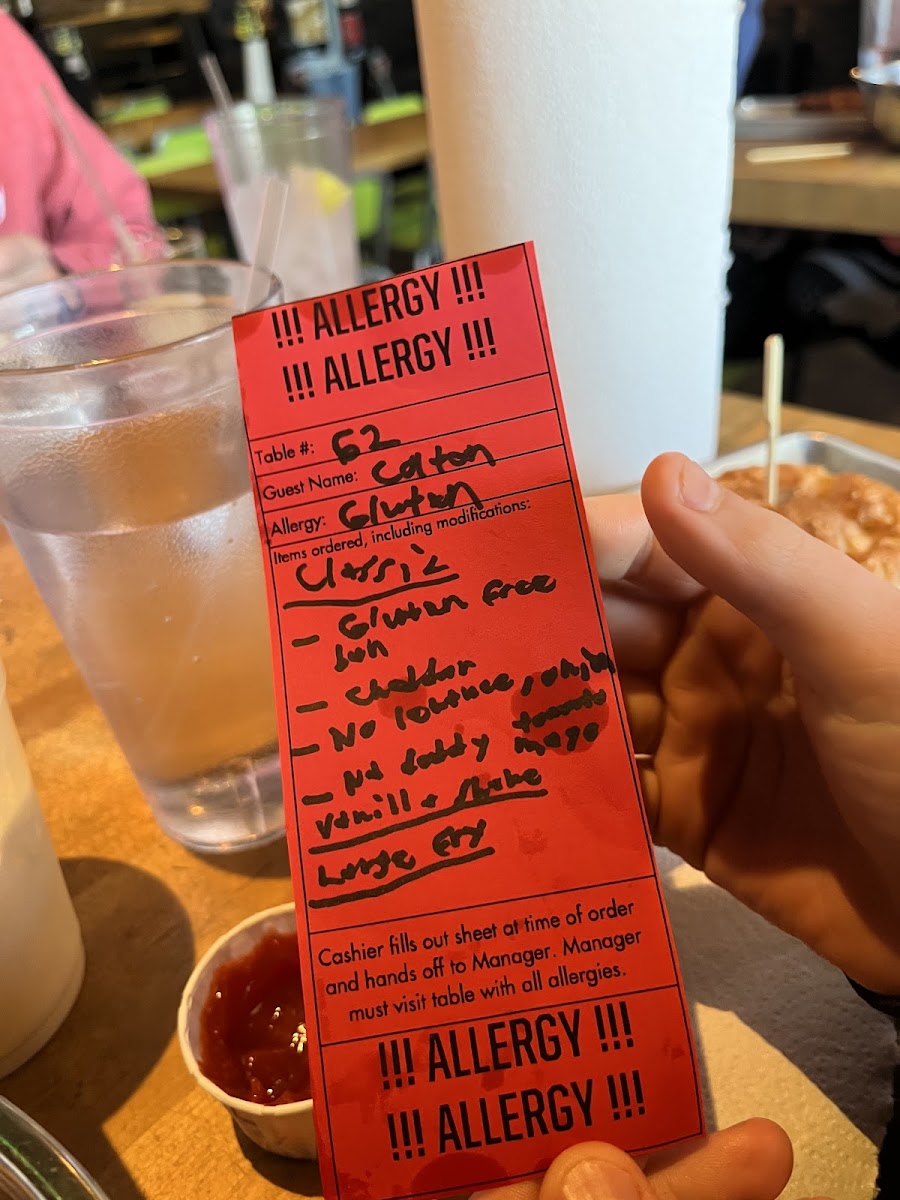 !!! ALLERGY !!!
!!! ALLERGY !!!
Table #: 52
Guest Name: Colton
Allergy: Gluten
Items ordered, including modifications:
Classic
- Gluten Free
bun
- Cheddar
- No lettuce, onion
tomato
- No daddy mayo
Vanilla Shake
Large Fry
Cashier fills out sheet at time of order
and hands off to Manager. Manager
must visit table with all allergies.
!!! ALLERGY !!!
!!! ALLERGY !!!